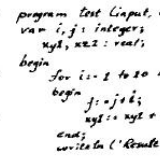 program test (input,
var i, j : integer;
xy1, xz2 : real;
begin
for i:= 1 to 10
begin
j:=j+i;
xy1:= xy1 +
end;
writeln ('Result